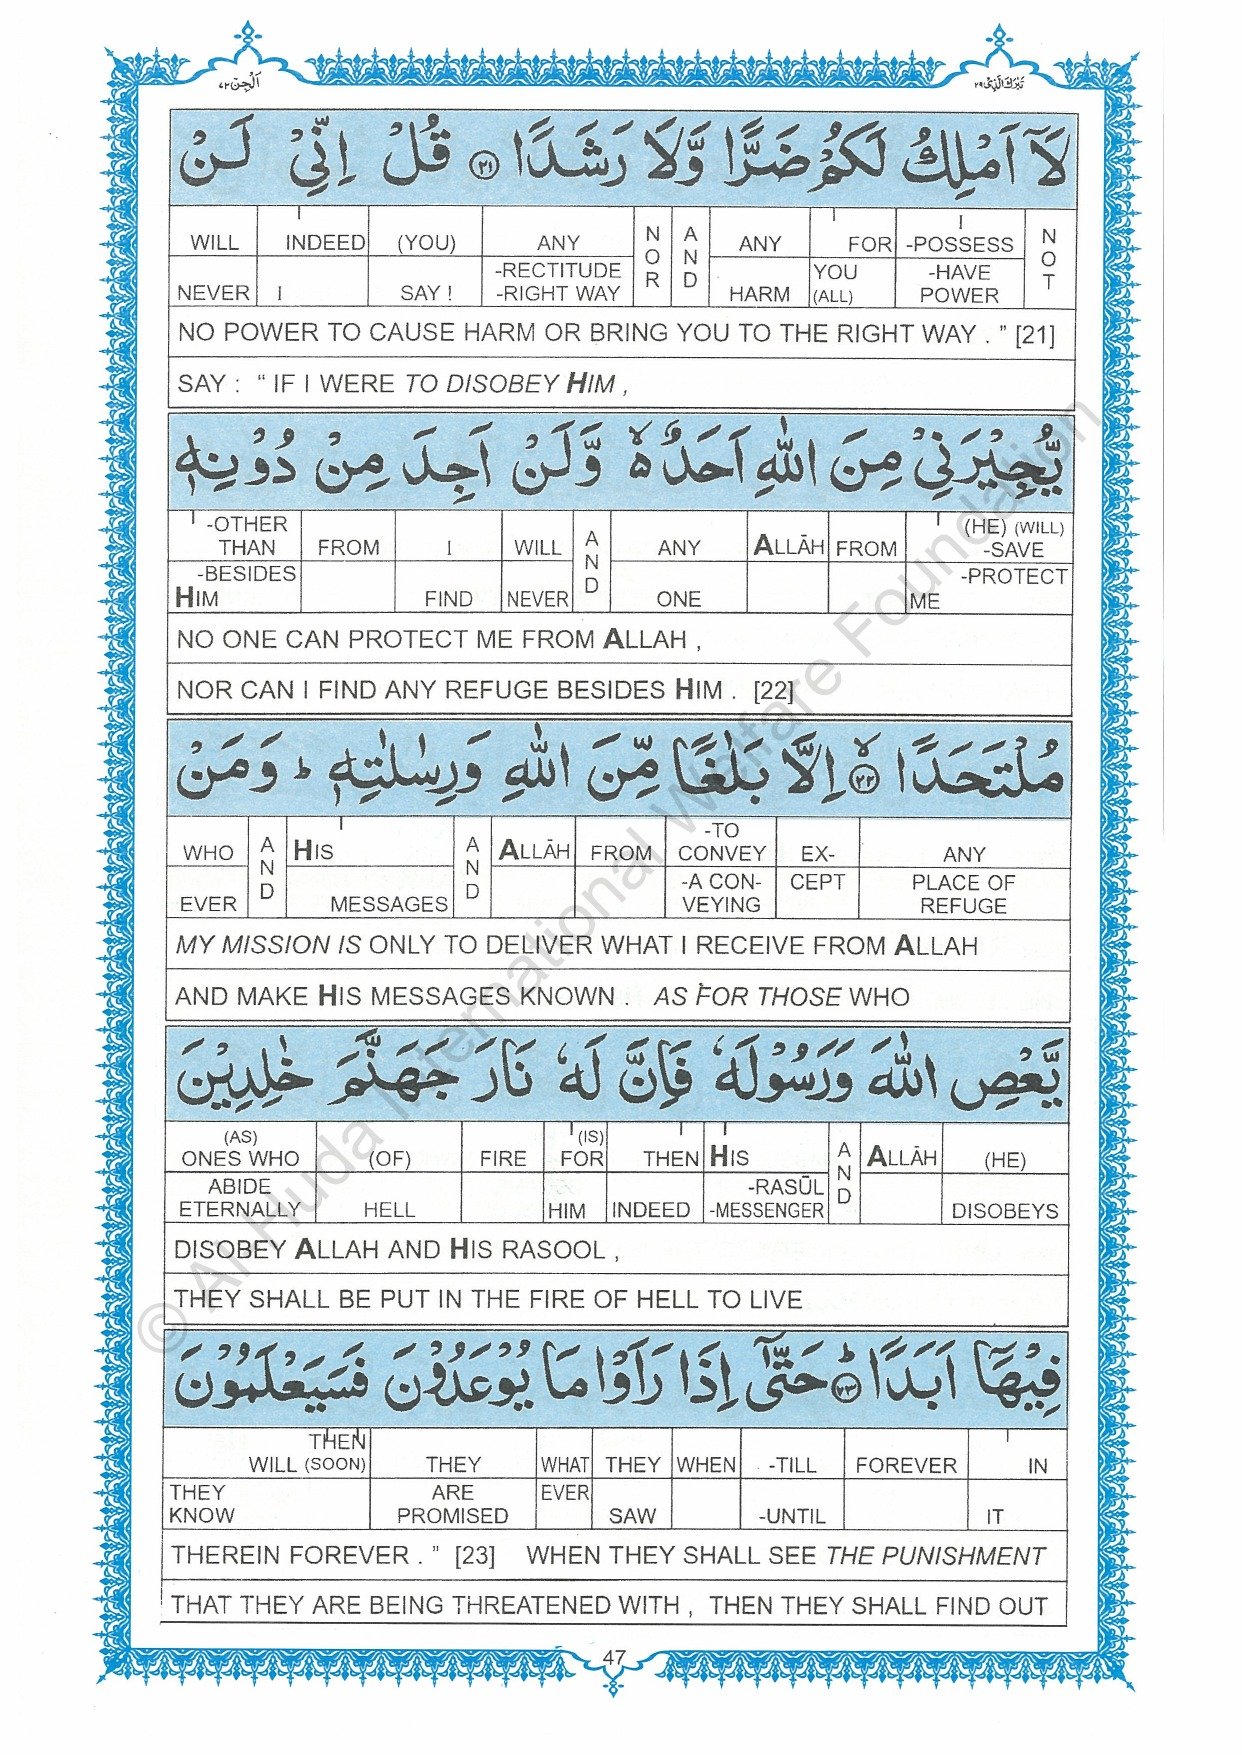 اَلْجِنّ ٧٢
تَبٰرَكَ الَّذِىْ ٢٩
لَآ اَمْلِكُ لَكُمْ ضَرًّا وَّلَا رَشَدًا ﴿٢١﴾ قُلْ اِنِّىْ لَنْ
WILL INDEED (YOU) ANY NOR AND ANY FOR I -POSSESS NOT
NEVER I SAY ! -RECTITUDE -RIGHT WAY HARM YOU (ALL) -HAVE POWER
NO POWER TO CAUSE HARM OR BRING YOU TO THE RIGHT WAY . ” [21]
SAY : “ IF I WERE TO DISOBEY HIM ,
يُّجِيْرَنِىْ مِنَ اللّٰهِ اَحَدٌ ۙ وَّلَنْ اَجِدَ مِنْ دُوْنِهٖ
-OTHER THAN FROM I WILL AND ANY ALLĀH FROM (HE) (WILL) -SAVE
-BESIDES HIM FIND NEVER ONE -PROTECT ME
NO ONE CAN PROTECT ME FROM ALLAH ,
NOR CAN I FIND ANY REFUGE BESIDES HIM . [22]
مُلْتَحَدًا ۙ﴿٢٢﴾ اِلَّا بَلٰغًا مِّنَ اللّٰهِ وَرِسٰلٰتِهٖ ؕ وَمَنْ
WHO AND HIS AND ALLĀH FROM -TO CONVEY EX- ANY
EVER MESSAGES -A CON- VEYING CEPT PLACE OF REFUGE
MY MISSION IS ONLY TO DELIVER WHAT I RECEIVE FROM ALLAH
AND MAKE HIS MESSAGES KNOWN . AS FOR THOSE WHO
يَّعْصِ اللّٰهَ وَرَسُوْلَهٗ فَاِنَّ لَهٗ نَارَ جَهَنَّمَ خٰلِدِيْنَ
(AS) ONES WHO (OF) FIRE (IS) FOR THEN HIS AND ALLĀH (HE)
ABIDE ETERNALLY HELL HIM INDEED -RASŪL -MESSENGER DISOBEYS
DISOBEY ALLAH AND HIS RASOOL ,
THEY SHALL BE PUT IN THE FIRE OF HELL TO LIVE
فِيْهَآ اَبَدًا ؕ﴿٢٣﴾ حَتّٰٓى اِذَا رَاَوْا مَا يُوْعَدُوْنَ فَسَيَعْلَمُوْنَ
THEN WILL (SOON) THEY WHAT THEY WHEN -TILL FOREVER IN
THEY KNOW ARE PROMISED EVER SAW -UNTIL IT
THEREIN FOREVER . ” [23] WHEN THEY SHALL SEE THE PUNISHMENT
THAT THEY ARE BEING THREATENED WITH , THEN THEY SHALL FIND OUT
47
© Al Huda International Welfare Foundation